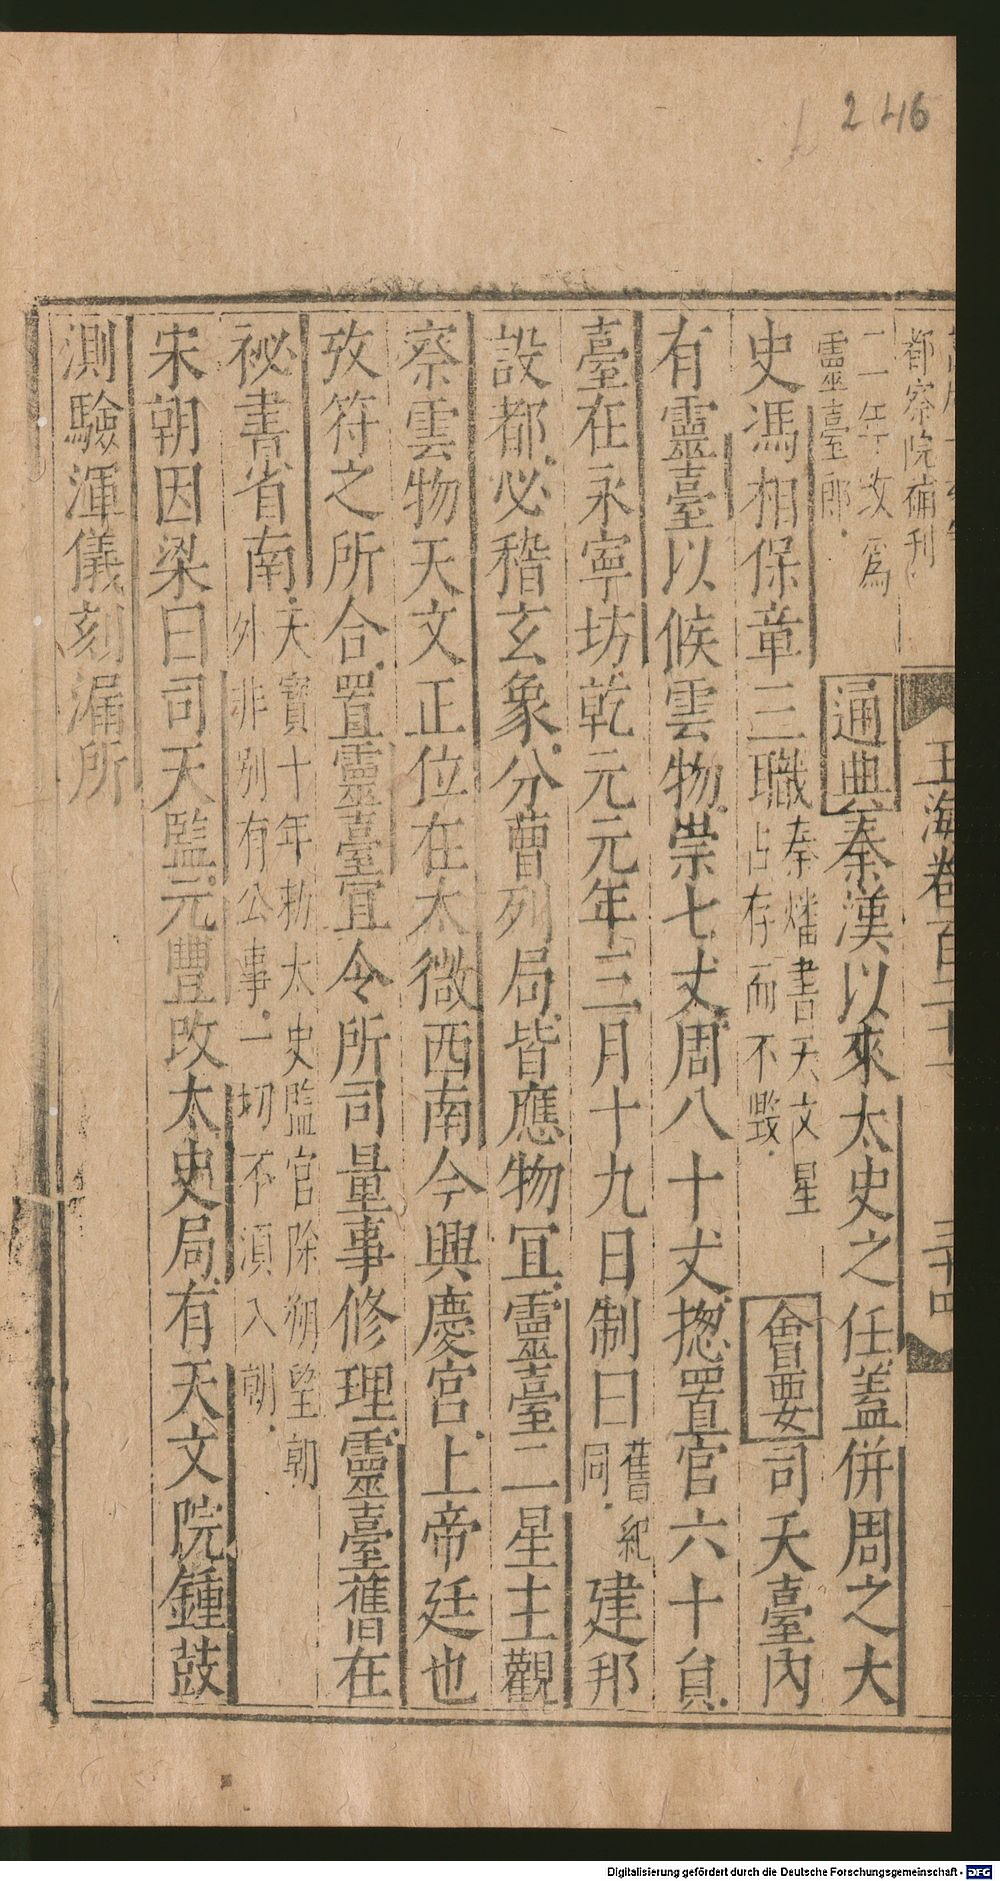 246
都察院補刊
玉海卷百二十一
三十四
二年改為
靈臺郎
通典秦漢以來太史之任蓋併周之大
史馮相保章三職秦燔書天文星
占存而不毀會要司天臺內
有靈臺以候雲物崇七丈周八十丈揔置官六十貟
臺在永寧坊乾元元年三月十九日制曰舊紀
同建邦
設都必稽玄象分曹列局皆應物宜靈臺二星主觀
察雲物天文正位在太微西南今興慶宮上帝廷也
攷符之所合置靈臺宜令所司量事修理靈臺舊在
祕書省南天寶十年勑太史監官除朔望朝
外非別有公事一切不湏入朝
宋朝因梁曰司天監元豐改太史局有天文院鍾鼓
測驗渾儀刻漏所
Digitalisierung gefördert durch die Deutsche Forschungsgemeinschaft - DFG